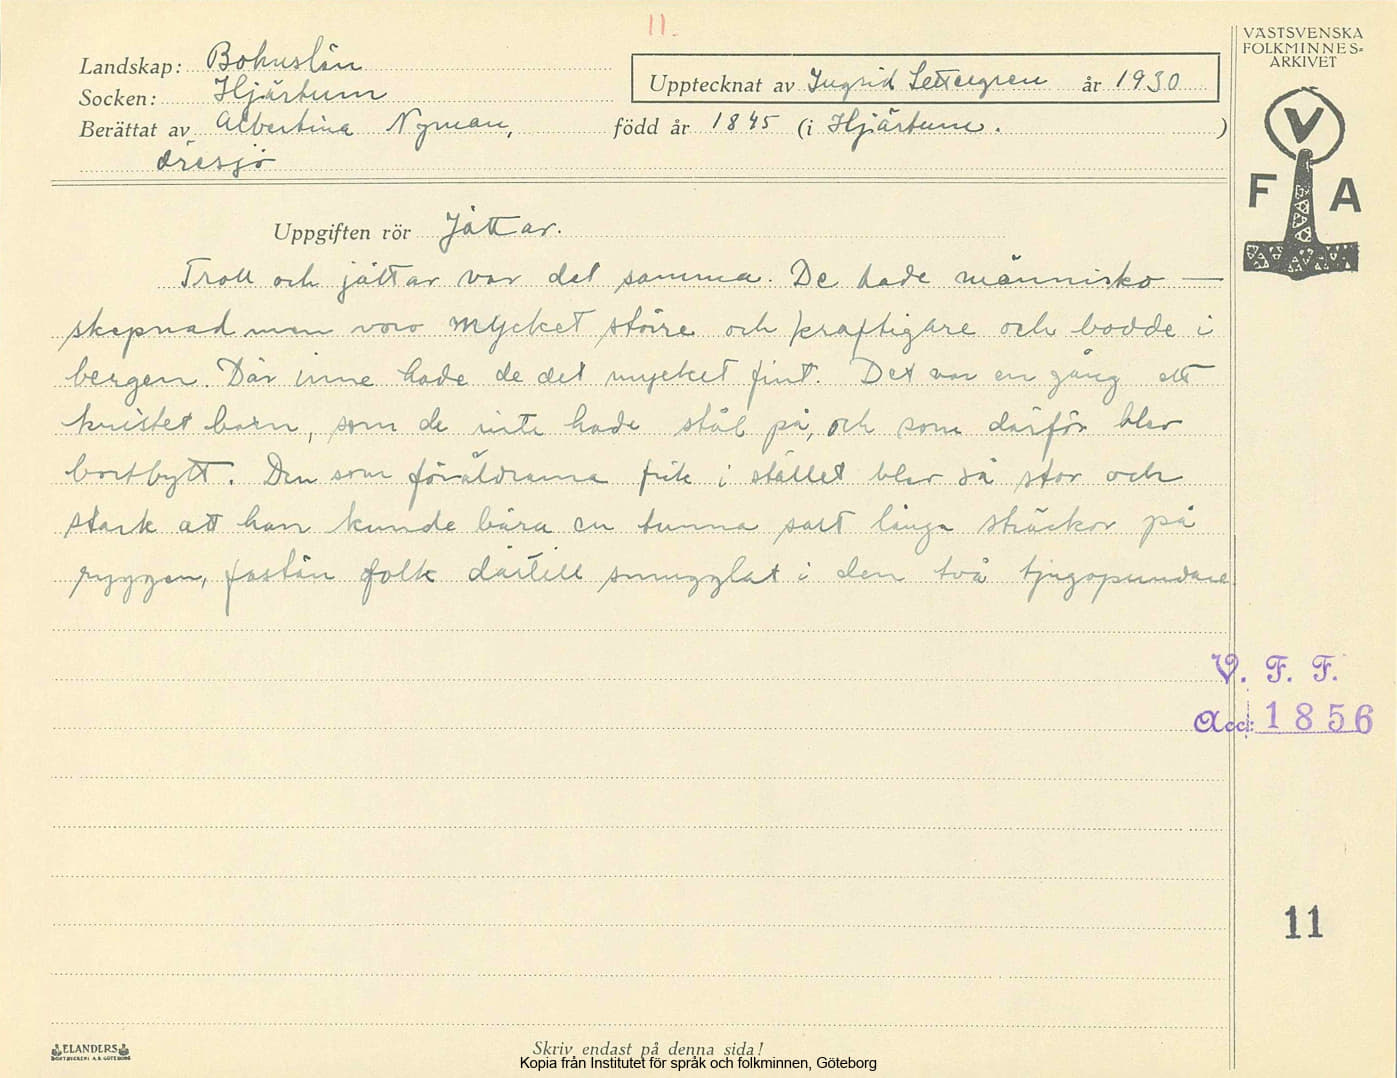 11.
VÄSTSVENSKA
FOLKMINNES=
ARKIVET
Landskap: Bohuslän
Socken: Hjärtum
Upptecknat av Ingrid Settergren år 1930
Berättat av Albertina Nyman, född år 1845 (i Hjärtum. )
Öresjö
V
F A
Uppgiften rör Jättar.
Troll och jättar var det samma. De hade människo—
skepnad men voro mycket större och kraftigare och bodde i
bergen. Där inne hade de det mycket fint. Det var en gång ett
kristet barn, som de inte hade stål på, och som därför blev
bortbytt. Den som föräldrarna fick i stället blev så stor och
stark att han kunde bära en tunna salt långa sträckor på
ryggen, fastän folk därtill smugglat i den två tjugopundare.
V. F. F.
Acc: 1856
11
ELANDERS
BOKTRYCKERI A.B. GÖTEBORG
Skriv endast på denna sida!
Kopia från Institutet för språk och folkminnen, Göteborg